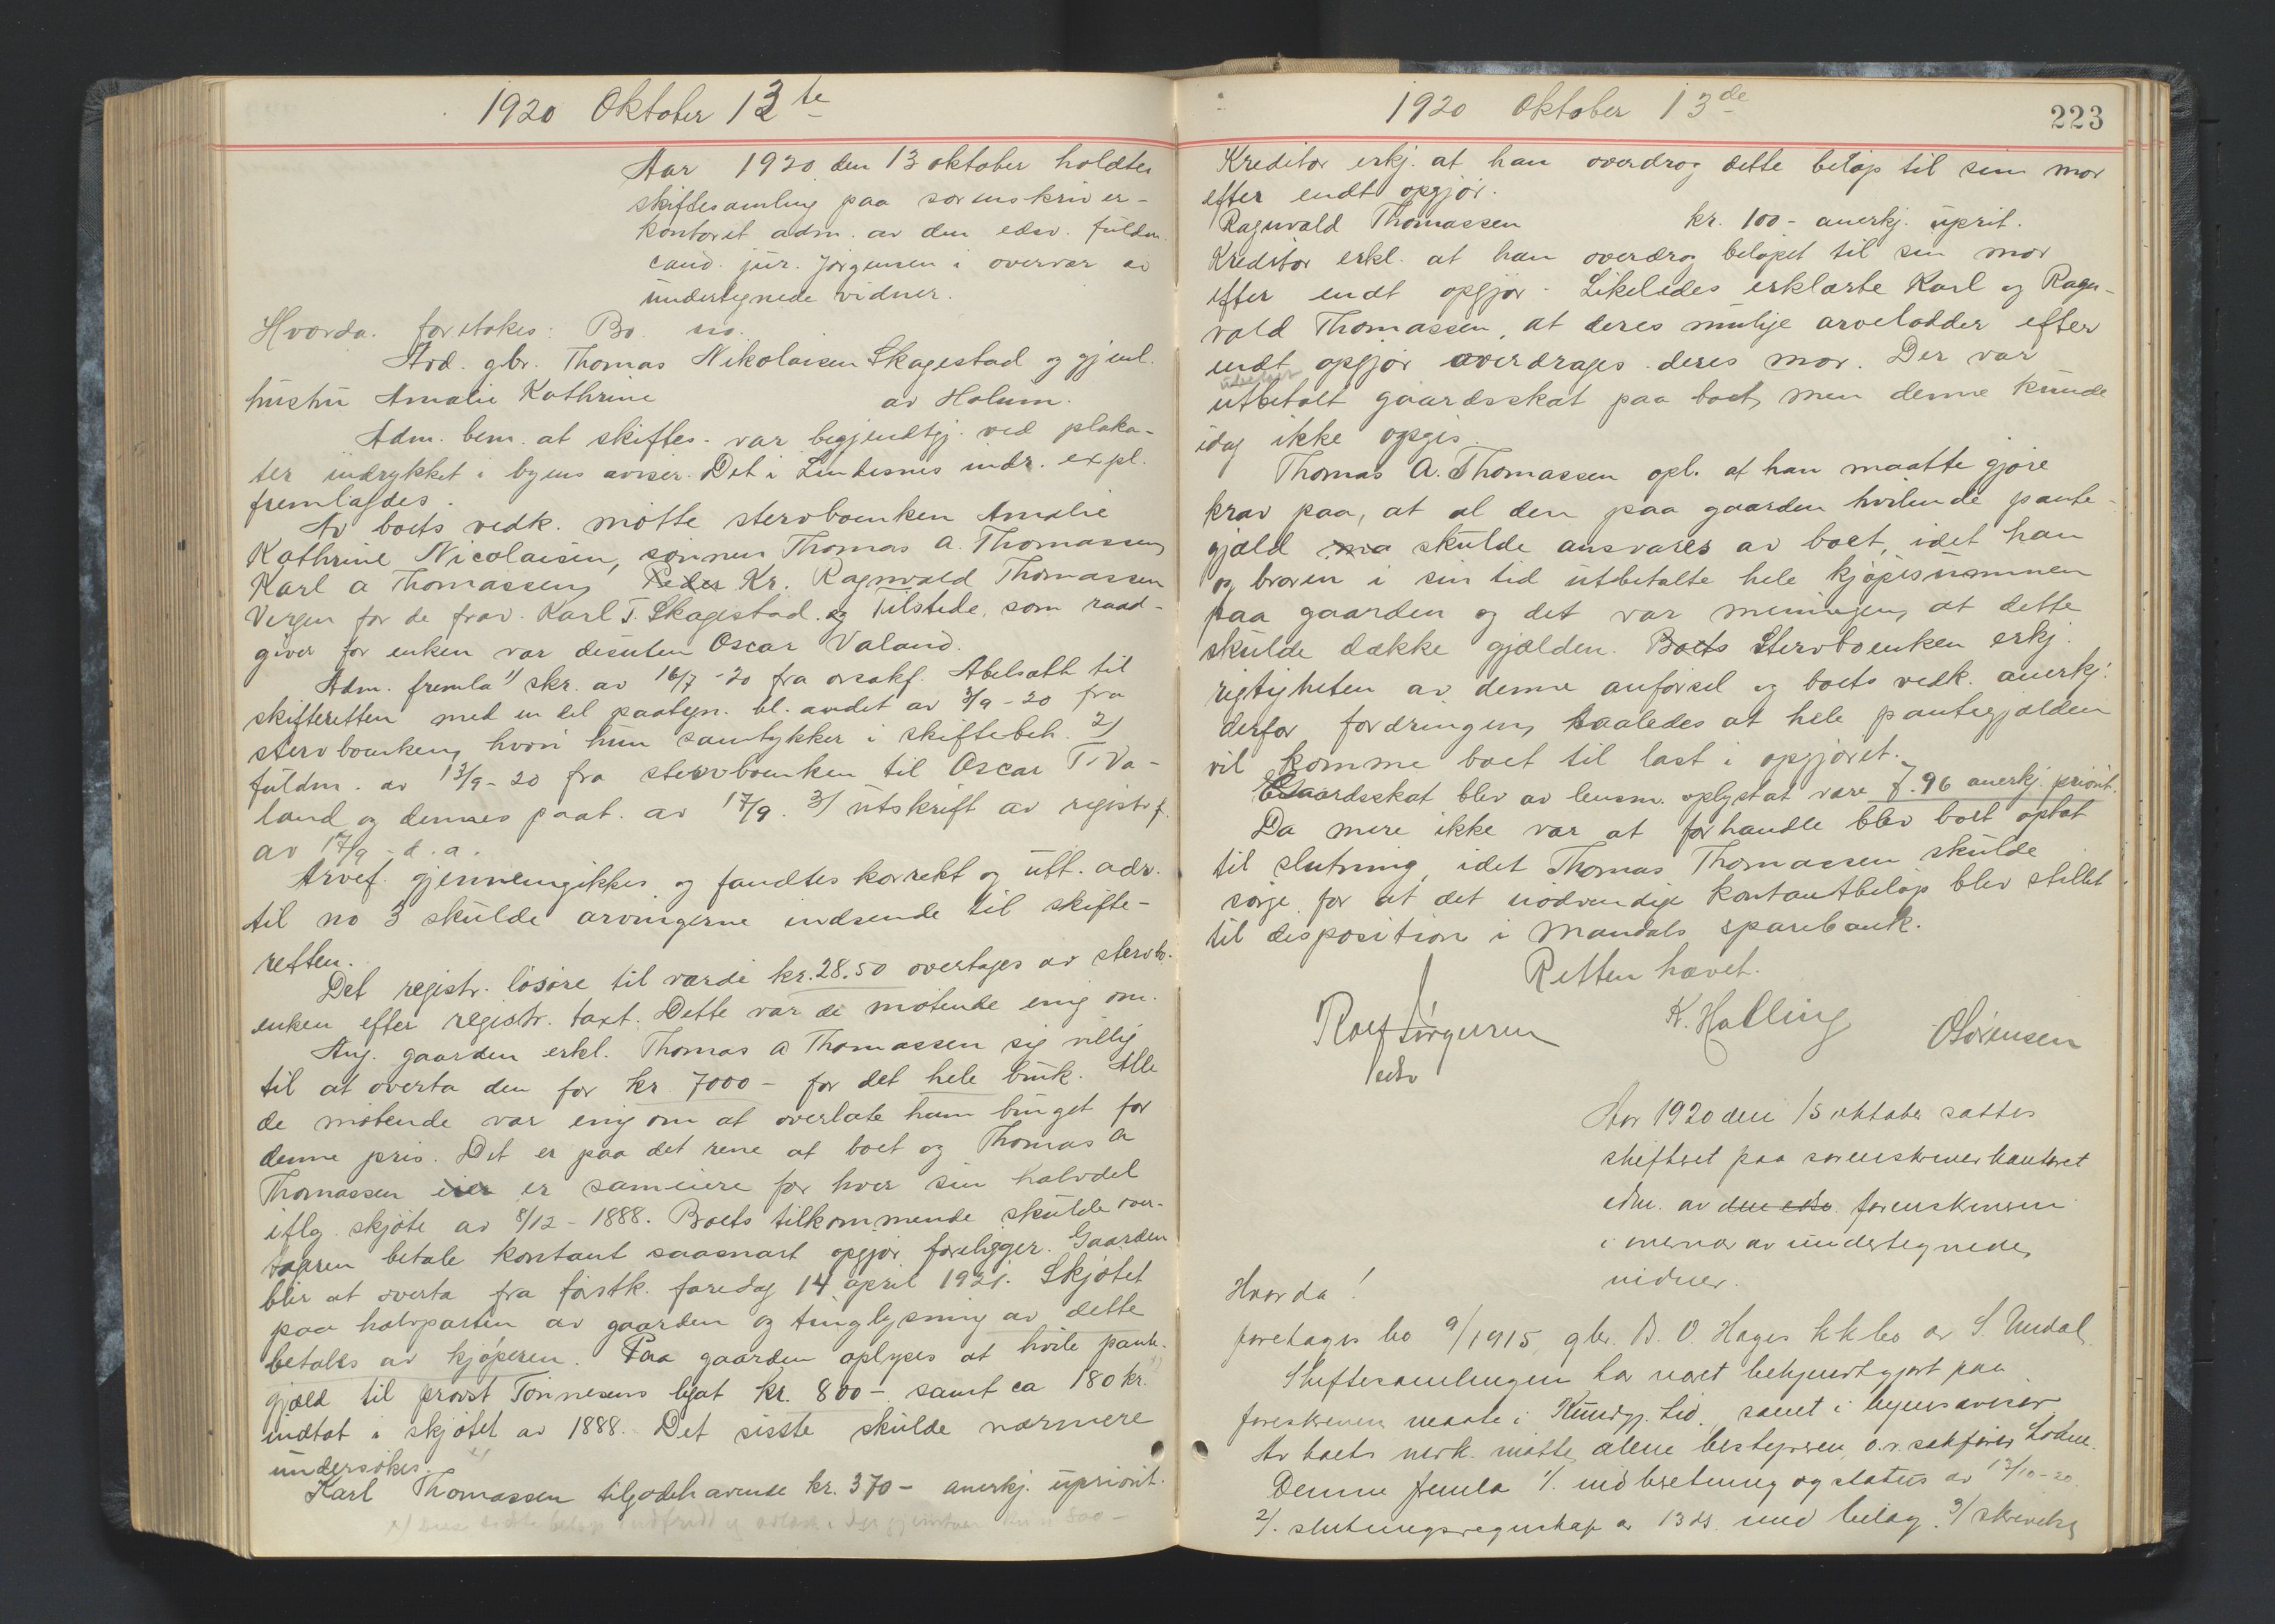 1920 Oktober 13te
Aar 1920 den 13 oktober holdtes
skiftesamling paa sorenskriver-
kontoret adm. av den edsv. fuldm.
cand. jur. Jørgensen i overvær av
undertegnede vidner.
Hvorda. foretokes: Bo. no.
Avd. gbr. Thomas Nikolaisen Skagestad og gjenl.
hustru Amalie Kathrine av Holum.
Adm. bem. at skiftes. var begjendtgj. ved plaka-
ter indrykket i byens aviser. Det i Lindesnes indr. expl.
fremlagdes.
Av boets vedk. møtte stervboenken Amalie
Kathrine Nicolaisen, sønnen Thomas A. Thomassen,
Karl A Thomassen, Peder Kr. Ragnvald Thomassen
Vergen for de frav. Karl T. Skagestad. og Tilstede, som raad-
giver for enken var desuten Oscar Valand.
Adm. fremla 1) skr. av 16/7-20 fra orsakf. Abelsæth til
skifteretten med en del paategn. bl. andet av 3/9-20 fra
stervboenken, hvori hun samtykker i skiftebeh. 2)
fuldm. av 13/9-20 fra stervboenken til Oscar T. Va-
land og dennes paat. av 17/9. 3) utskrift av registr.f.
av 17/9 - d. a.
Arvef. gjennemgikkes og fandtes korrekt og utf. adr.
til no 3 skulde arvingerne indsende til skifte-
retten.
Det registr. løsøre til værdi kr. 28.50 overtages av stervbo-
enken efter registr. taxt. Dette var de møtende enig om.
Ang. gaarden erkl. Thomas A Thomassen sig villig
til at overta den for kr. 7000- for det hele bruk. Alle
de møtende var enig om at overlate ham bruget for
denne pris. Det er paa det rene at boet og Thomas A
Thomassen eier er sameiere for hver sin halvdel
iflg. skjøte av 8/12-1888. Boets tilkommende skulde over-
tageren betale kontant saasnart opgjør foreligger. Gaarden
blir at overta fra førstk. faredag 14 april 1921. Skjøtet
paa halvparten av gaarden og tinglysning av dette
betales av kjøperen. Paa gaarden oplyses at hvile pante-
gjæld til provst Tønnesens legat kr. 800- samt ca 180 kr.
indtat i skjøtet av 1888. Det sisste skulde nærmere
undersøkes.
Karl Thomassen tilgodehavende kr. 370- anerkj. upriorit.
1920 Oktober 13de
223
Kreditor erkj. at han overdrog dette beløp til sin mor
efter endt opgjør.
Ragnvald Thomassen kr. 100- anerkj. uprit.
Kreditor erkl. at han overdrog beløpet til sin mor
efter endt opgjør. Likeledes erklærte Karl og Ragn-
vald Thomassen, at deres mulige arvelodder efter
endt opgjør overdrages deres mor. Der var
utbetalt gaardsskat paa boet, men denne kunde
idag ikke opgis.
Thomas A. Thomassen opl. at han maatte gjøre
krav paa, at al den paa gaarden hvilende pante-
gjæld skulde ansvares av boet, idet han
og broren i sin tid utbetalte hele kjøpesummen
paa gaarden og det var meningen, at dette
skulde dække gjælden. Boets Stervboenken erkj.
rigtigheten av denne anførsel og boets vedk. anerkj.
derfor fordringen, saaledes at hele pantegjælden
vil komme boet til last i opgjøret.
Gaardsskat blev av lensm. oplyst at være 7.96 anerkj. priorit.
Da mere ikke var at forhandle blev boet optat
til slutning, idet Thomas Thomassen skulde
sørge for at det nødvendige kontantbeløp blev stillet
til disposition i Mandals sparebank.
Retten hævet.
Rolf Jørgensen K. Halling O Sørensen
edsv
Aar 1920 den 15 oktober sattes
skifteret paa sorenskriverkontoret
adm. av den edsv. sorenskriveren
i overvær av undertegnede
vidner.
Hvorda!
foretages bo 9/1915, gbr. B. O. Hages kkbo av S. Undal
Skiftesamlingen har været bekjendtgjort paa
foreskreven maate i Kundgj. tid. samt i byens aviser
Av boets vedk. møtte alene bestyreren, o.r. sakfører
Denne fremla 1/. indberetning og status av 12/10-20
2/. slutningsregnskap av 13 ds. med bilag. 3/ skrivelse